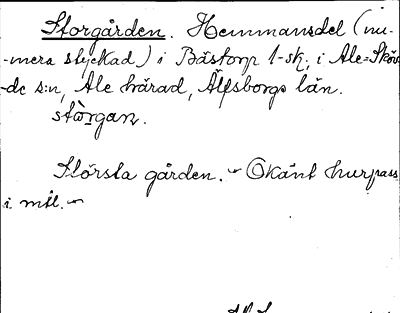 Storgården. Hemmansdel (nu-
-mera styckad) i Bästorp 1-sk, i Ale=Sköv
-de s:n, Ale härad, Älfsborgs län.
stòrgan.
Största gården. - Okänt hurpass
i mtl. -